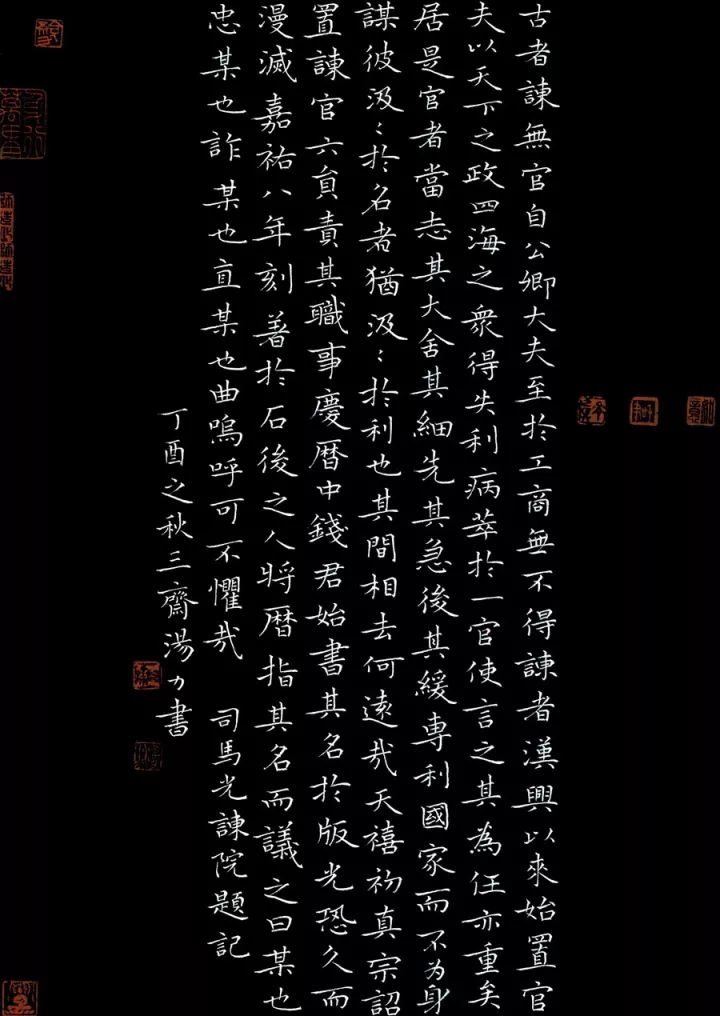 古者諫無官自公卿大夫至於工商無不得諫者漢興以來始置官
夫以天下之政四海之眾得失利病萃於一官使言之其為任亦重矣
居是官者當志其大舍其細先其急後其緩專利國家而不为身
謀彼汲〻於名者猶汲〻於利也其間相去何遠哉天禧初真宗詔
置諫官六員責其職事慶暦中錢君始書其名於版光恐久而
漫滅嘉祐八年刻著於石後之人將暦指其名而議之曰某也
忠某也詐某也直某也曲嗚呼可不懼哉 司馬光諫院題記
丁酉之秋三齋湯力書